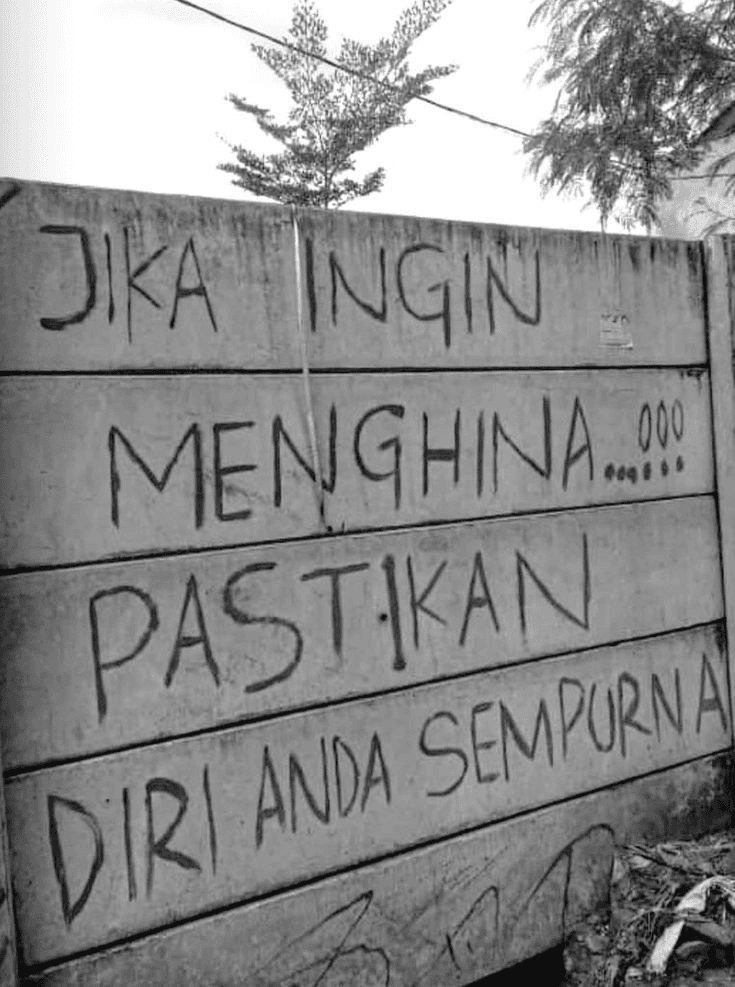 JIKA INGIN
MENGHINA...!!!
PASTIKAN
DIRI ANDA SEMPURNA